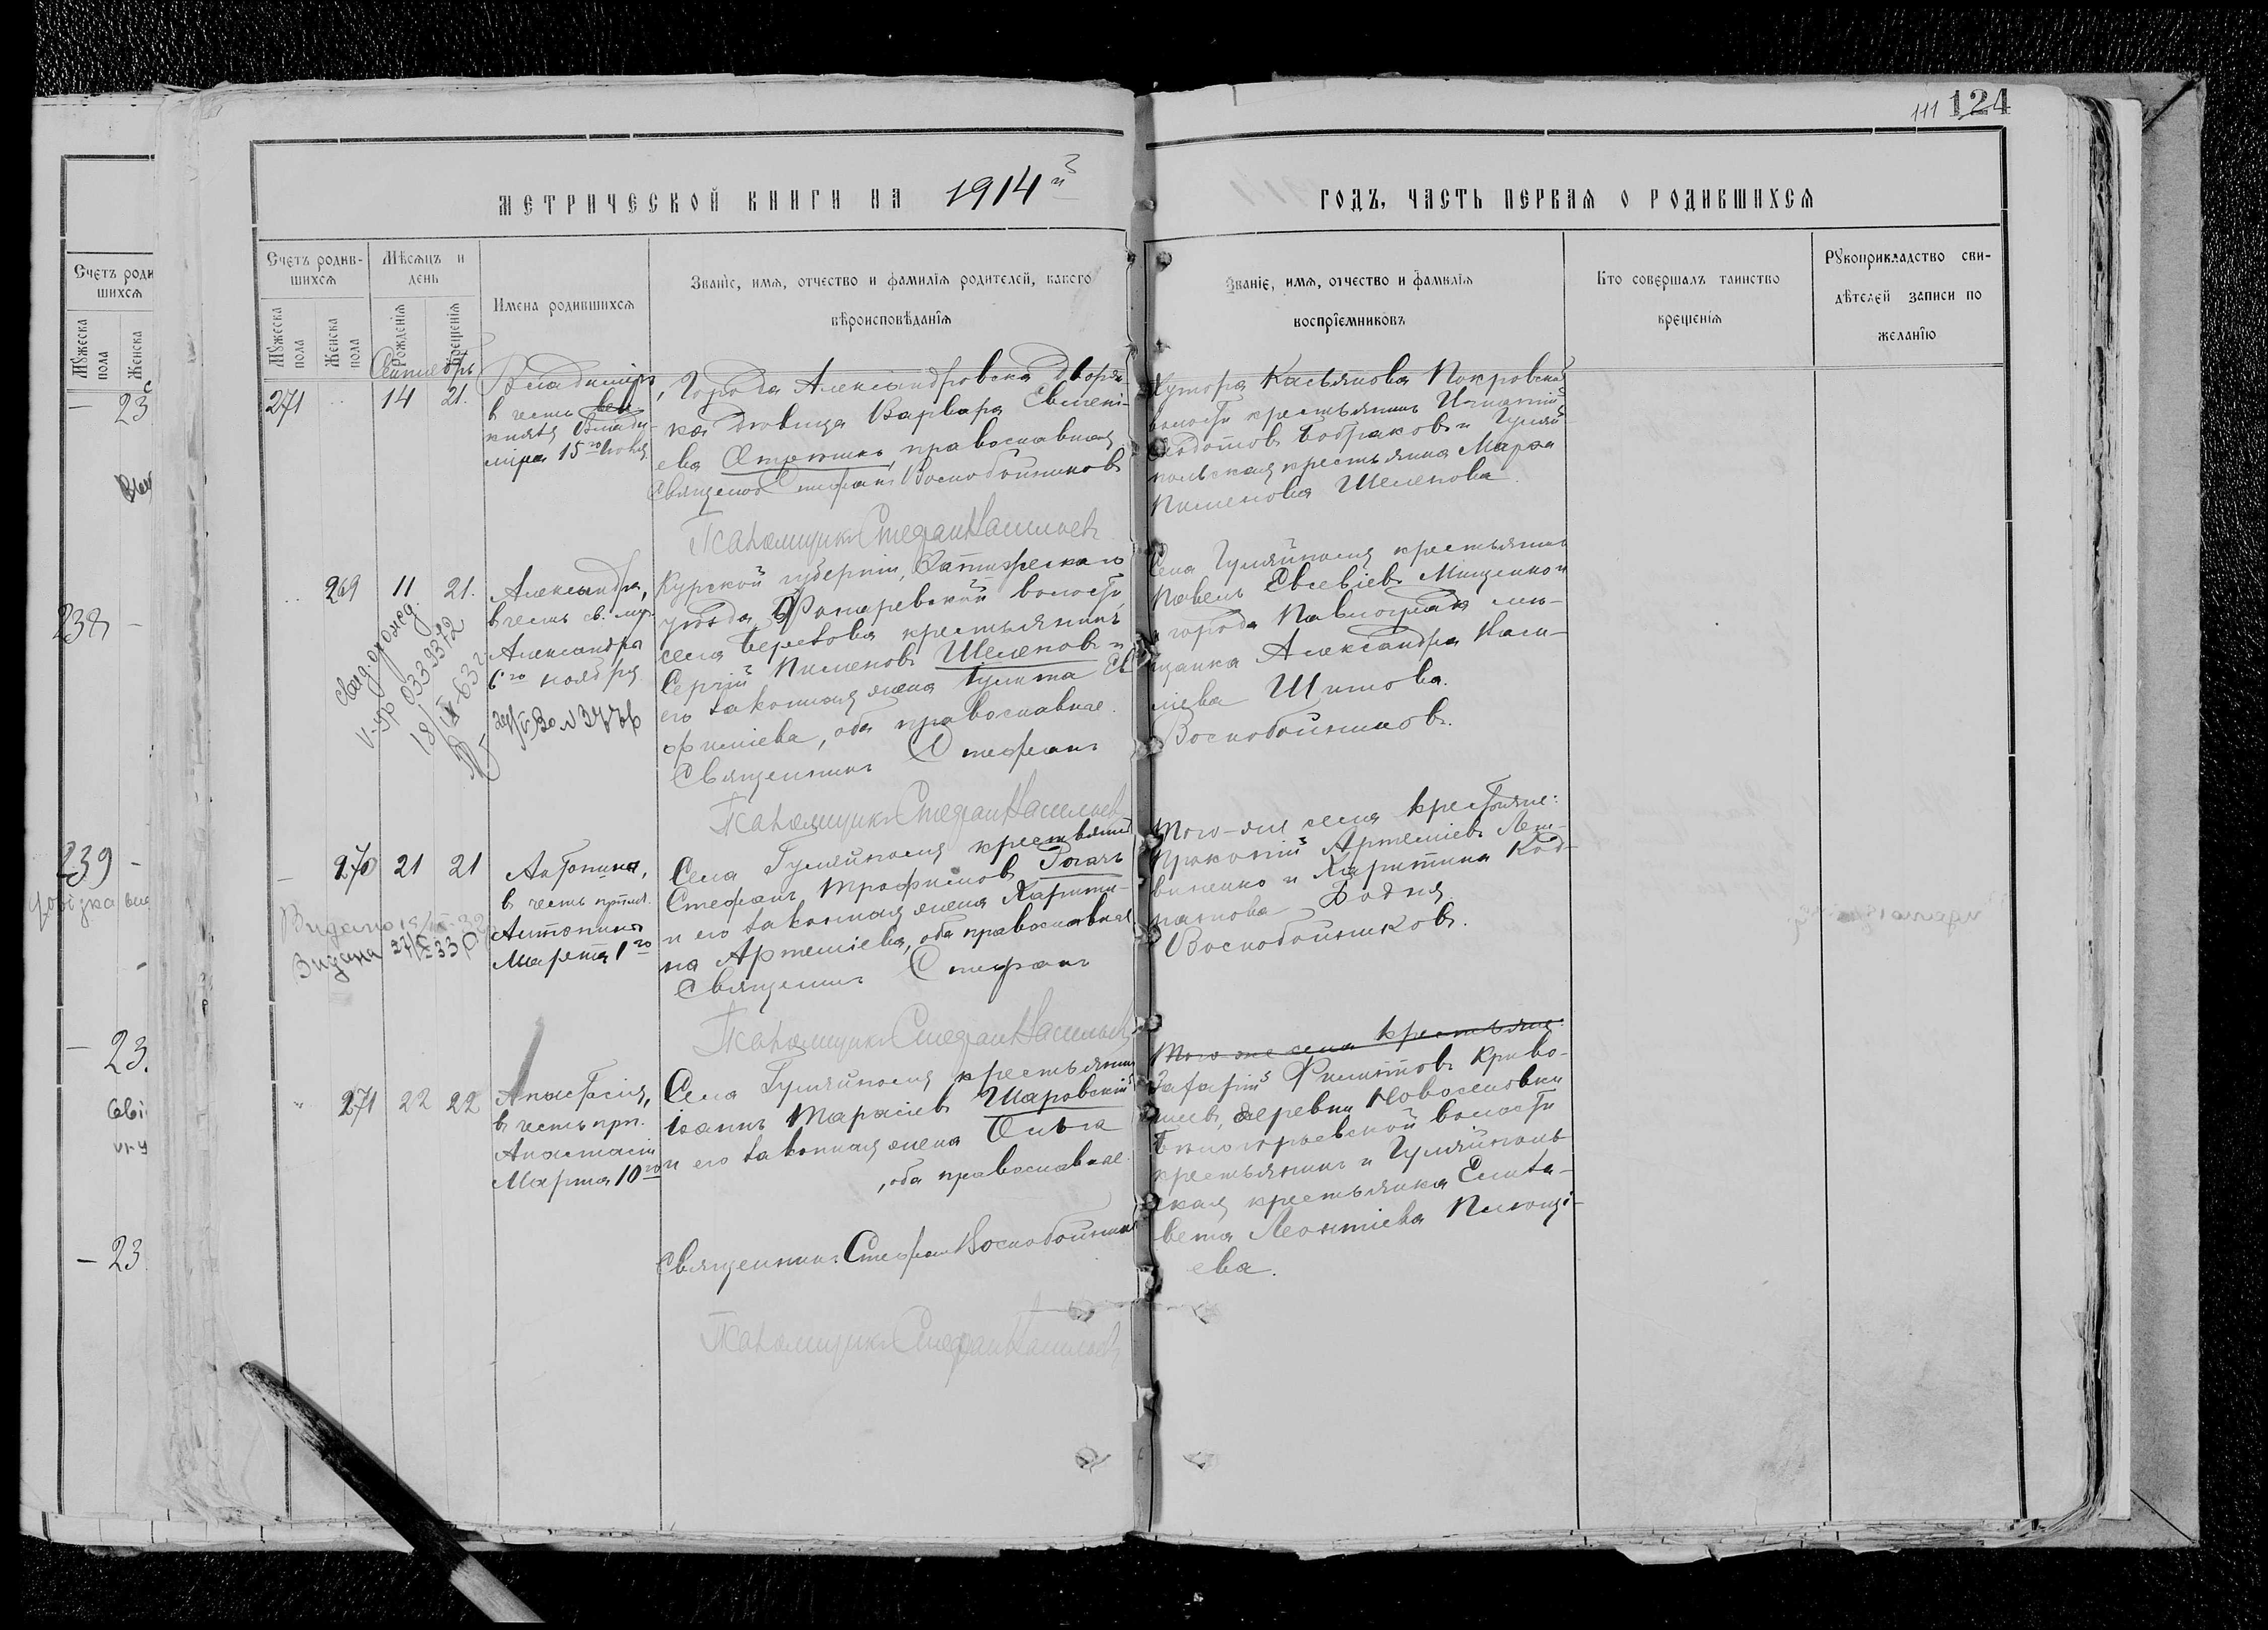 111 124
МЕТРИЧЕСКОЙ КНИГИ НА 1914й
ГОДЪ, ЧАСТЬ ПЕРВАЯ О РОДИВШИХСЯ
Счетъ роди
шихся
Мужеска пола
Женска
23
238
239
23.
23
Счетъ родив-
шихся
Мѣсяцъ и
день
Мужеска пола
Женска пола
Рожденія
Крещенія
Имена родившихся
Званіе, имя, отчество и фамилія родителей, какого
вѣроисповѣданія
Званіе, имя, отчество и фамилія
воспріемниковъ
Кто совершалъ таинство
крещенія
Рукоприкладство сви-
дѣтелей записи по
желанію
Сентябрь
271 14 21.
Владиміръ,
в честь
князя Влади-
міра 15го Іюля
Города Александровска дворян-
ка девица Варвара Евгені-
ева, православная
Священ. Стефанъ Воскобойниковъ
Псаломщикъ Стефан
Хутора Касьянова Покровской
волости крестьянинъ Игнатій
Федотовъ Бобраковъ и Гуляй-
польская крестьянка Марфа
Пименова Шеленова.
269 11 21.
Александра,
в честь св. муч.
Александры
6го ноября
свид. о рожд.
V-УР 0339372
19/IX-63 г.
Курской губерніи,
уѣзда, волости,
села Березова крестьянинъ
Сергій Пименовъ Шеленовъ и
его законная жена Ев-
фиміева, оба православные.
Священникъ Стефанъ
Псаломщикъ Стефан
Села Гуляйполя крестьянинъ
Павелъ Евсевіевъ Мищенко и
города Павлограда мѣ-
щанка Александра Васи-
ліева Шитова.
Воскобойниковъ.
270 21 21
Антонина,
в честь
Антонины
Марта 1го
Видано
Видана
Села Гуляйполя крестьянинъ
Стефанъ Трофимовъ Рогачъ
и его законная жена Харити-
на Артеміева, оба православные
Священникъ Стефанъ
Псаломщикъ Стефан
Того-же села крестьяне:
Прокопій Артеміевъ Лит-
виненко и Харитина Кон-
натова Бодня
Воскобойниковъ.
271 22 22
Анастасія,
в честь прп.
Анастасіи
Марта 10го
Села Гуляйполя крестьянинъ
Іоаннъ Тарасіевъ Шаровскій
и его законная жена Ольга
, оба православные.
Священникъ Стефан Воскобойников
Псаломщикъ Стефан
Того же села крестьяне:
Захарій Филиповъ Криво-
шеев, деревни Новоселовки
волости
крестьянинъ и Гуляйполь-
ская крестьянка Елиза-
вета Леонтіева
ева.